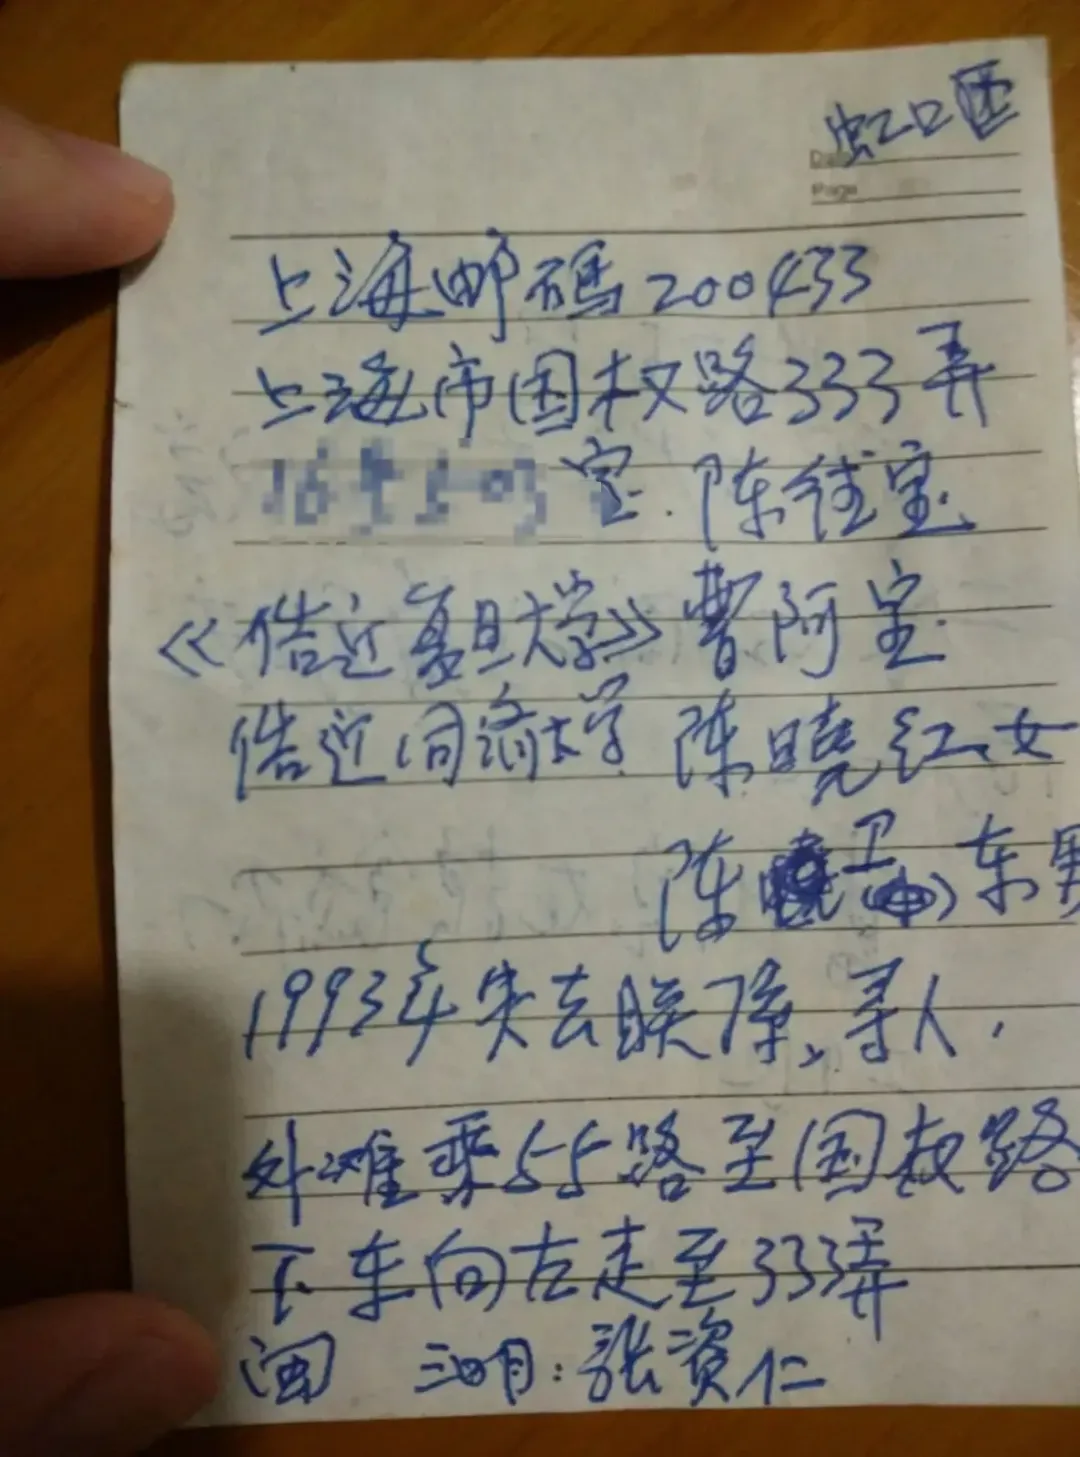 虹口区
Date
Page
上海邮码200433
上海市国权路333弄
室.陈
《借近复旦大学》曹阿宝
借近同济大学 陈晓红女
陈卫东男
1993年失去联係,寻人,
外滩乘55路至国权路
下车向左走至333弄
闽 三明:张资仁